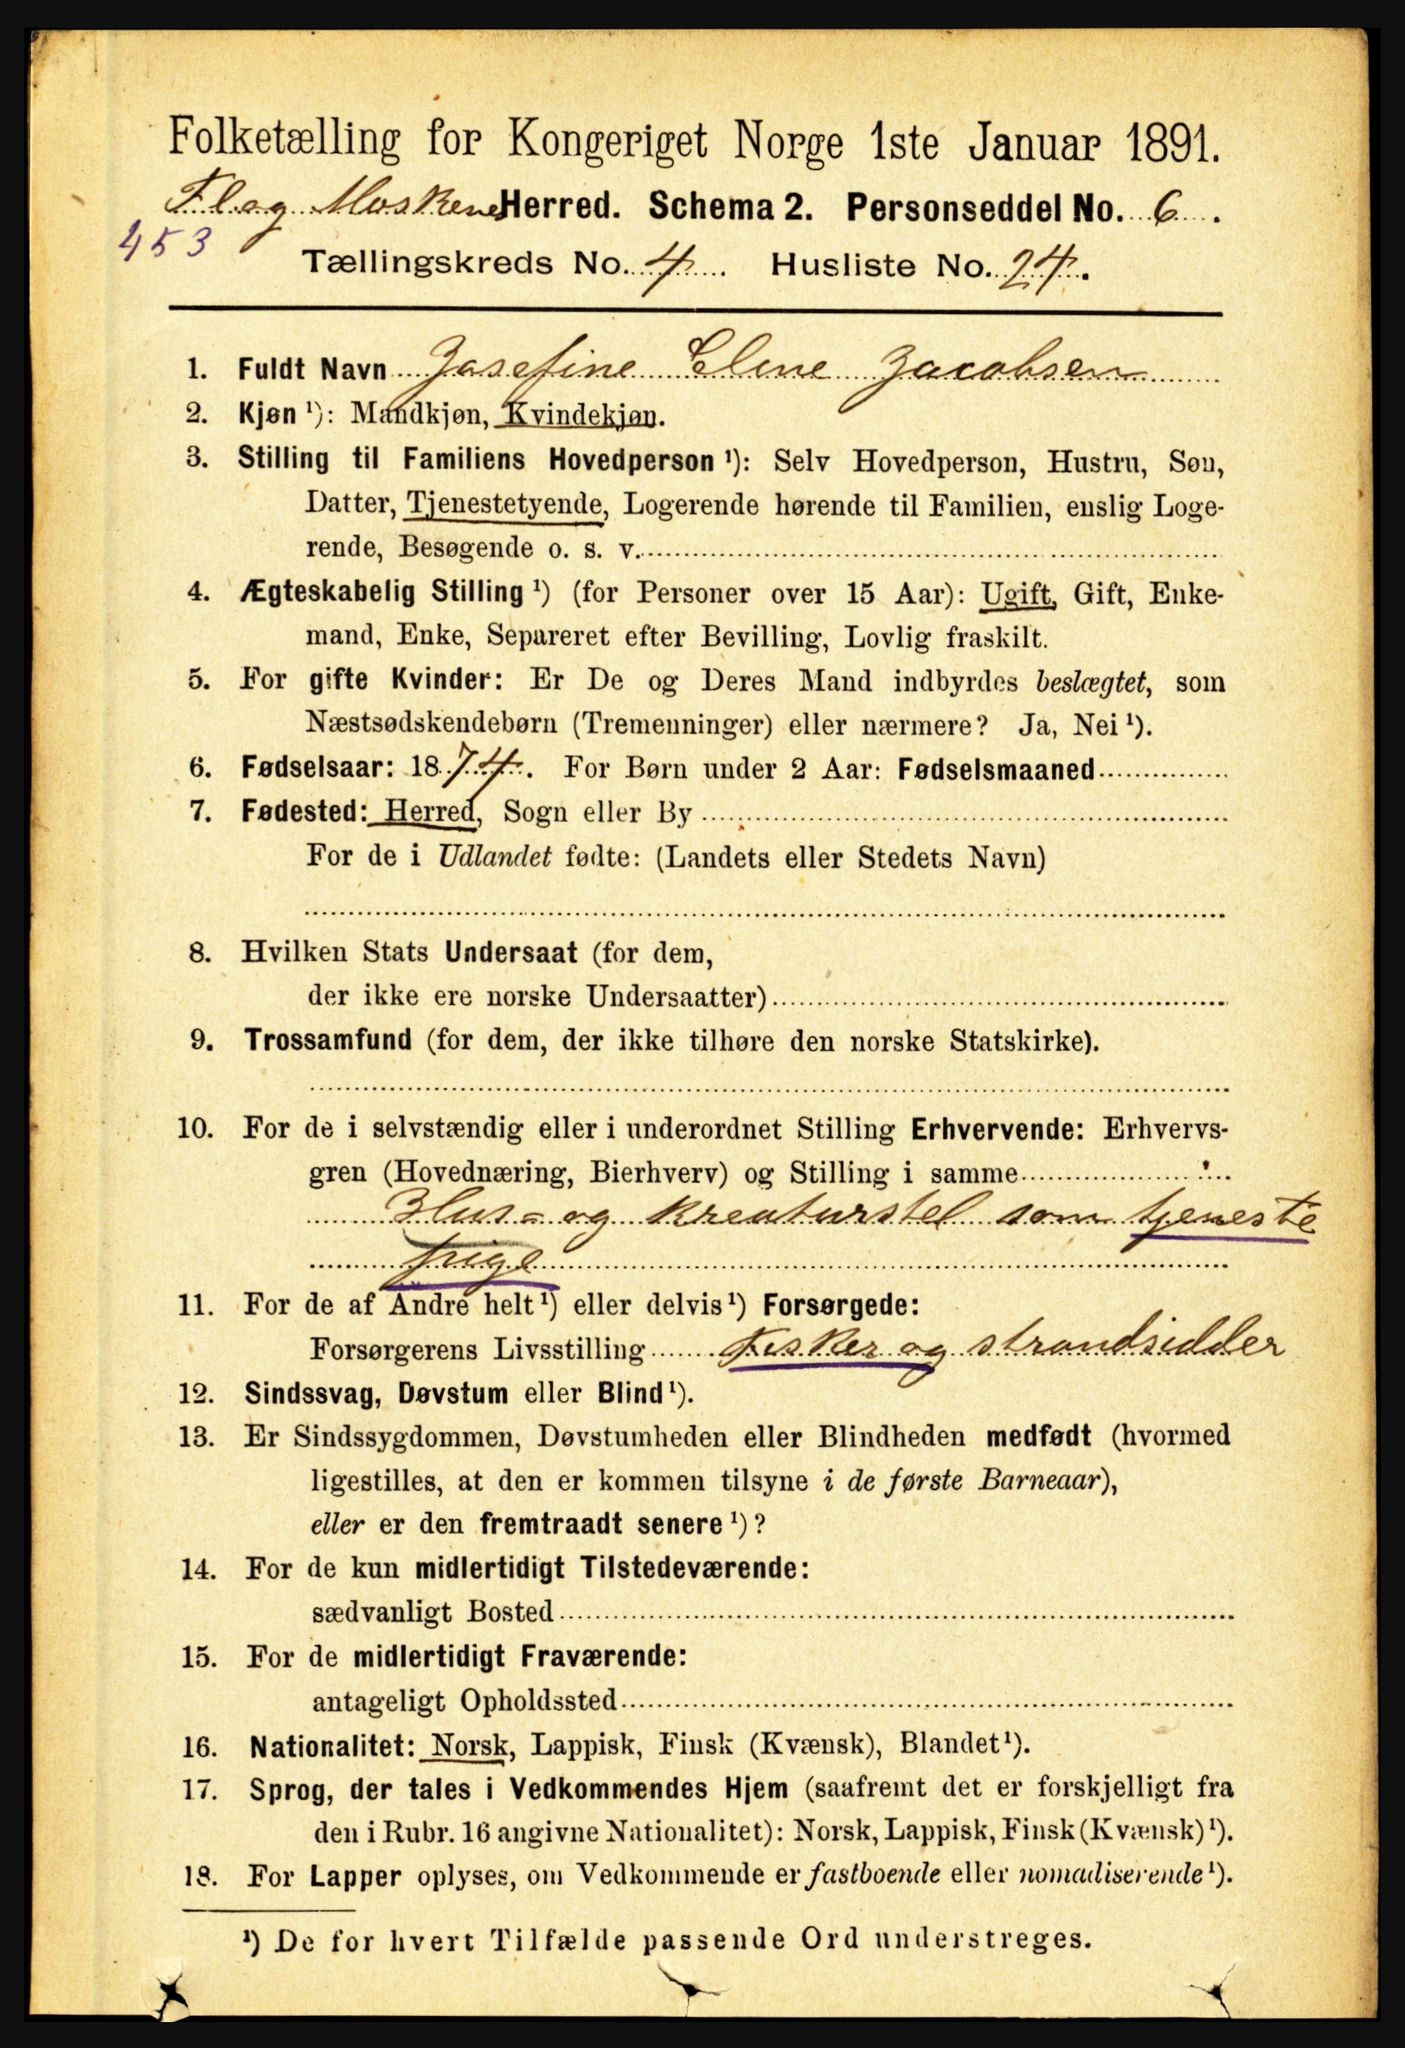 Folketælling for Kongeriget Norge 1ste Januar 1891.
Fl. og Moskenes Herred. Schema 2. Personseddel No. 6.
453
Tællingskreds No. 4. Husliste No. 24.
1. Fuldt Navn Josefine Eline Jacobsen
2. Kjøn ¹): Mandkjøn, Kvindekjøn.
3. Stilling til Familiens Hovedperson ¹): Selv Hovedperson, Hustru, Søn,
Datter, Tjenestetyende, Logerende hørende til Familien, enslig Loge-
rende, Besøgende o. s. v.
4. Ægteskabelig Stilling ¹) (for Personer over 15 Aar): Ugift, Gift, Enke-
mand, Enke, Separeret efter Bevilling, Lovlig fraskilt.
5. For gifte Kvinder: Er De og Deres Mand indbyrdes beslægtet, som
Næstsødskendebørn (Tremenninger) eller nærmere? Ja, Nei ¹).
6. Fødselsaar: 1874. For Børn under 2 Aar: Fødselsmaaned
7. Fødested: Herred, Sogn eller By
For de i Udlandet fødte: (Landets eller Stedets Navn)
8. Hvilken Stats Undersaat (for dem,
der ikke ere norske Undersaatter)
9. Trossamfund (for dem, der ikke tilhøre den norske Statskirke).
10. For de i selvstændig eller i underordnet Stilling Erhvervende: Erhvervs-
gren (Hovednæring, Bierhverv) og Stilling i samme
Hus- og kreaturstel som tjeneste
pige
11. For de af Andre helt ¹) eller delvis ¹) Forsørgede:
Forsørgerens Livsstilling Fisker og strandsidder
12. Sindssvag, Døvstum eller Blind ¹).
13. Er Sindssygdommen, Døvstumheden eller Blindheden medfødt (hvormed
ligestilles, at den er kommen tilsyne i de første Barneaar),
eller er den fremtraadt senere ¹)?
14. For de kun midlertidigt Tilstedeværende:
sædvanligt Bosted
15. For de midlertidigt Fraværende:
antageligt Opholdssted
16. Nationalitet: Norsk, Lappisk, Finsk (Kvænsk), Blandet ¹).
17. Sprog, der tales i Vedkommendes Hjem (saafremt det er forskjelligt fra
den i Rubr. 16 angivne Nationalitet): Norsk, Lappisk, Finsk (Kvænsk) ¹).
18. For Lapper oplyses, om Vedkommende er fastboende eller nomadiserende ¹).
¹) De for hvert Tilfælde passende Ord understreges.